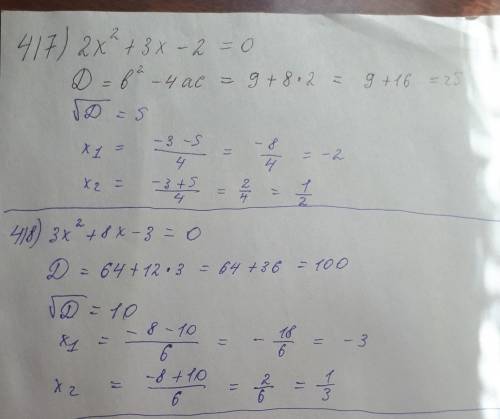 417) 2x² + 3x - 2 = 0
D = b² - 4ac = 9 + 8·2 = 9 + 16 = 25
√D = 5
x₁ = (-3 - 5)/4 = -8/4 = -2
x₂ = (-3 + 5)/4 = 2/4 = 1/2
418) 3x² + 8x - 3 = 0
D = 64 + 12·3 = 64 + 36 = 100
√D = 10
x₁ = (-8 - 10)/6 = - 18/6 = -3
x₂ = (-8 + 10)/6 = 2/6 = 1/3